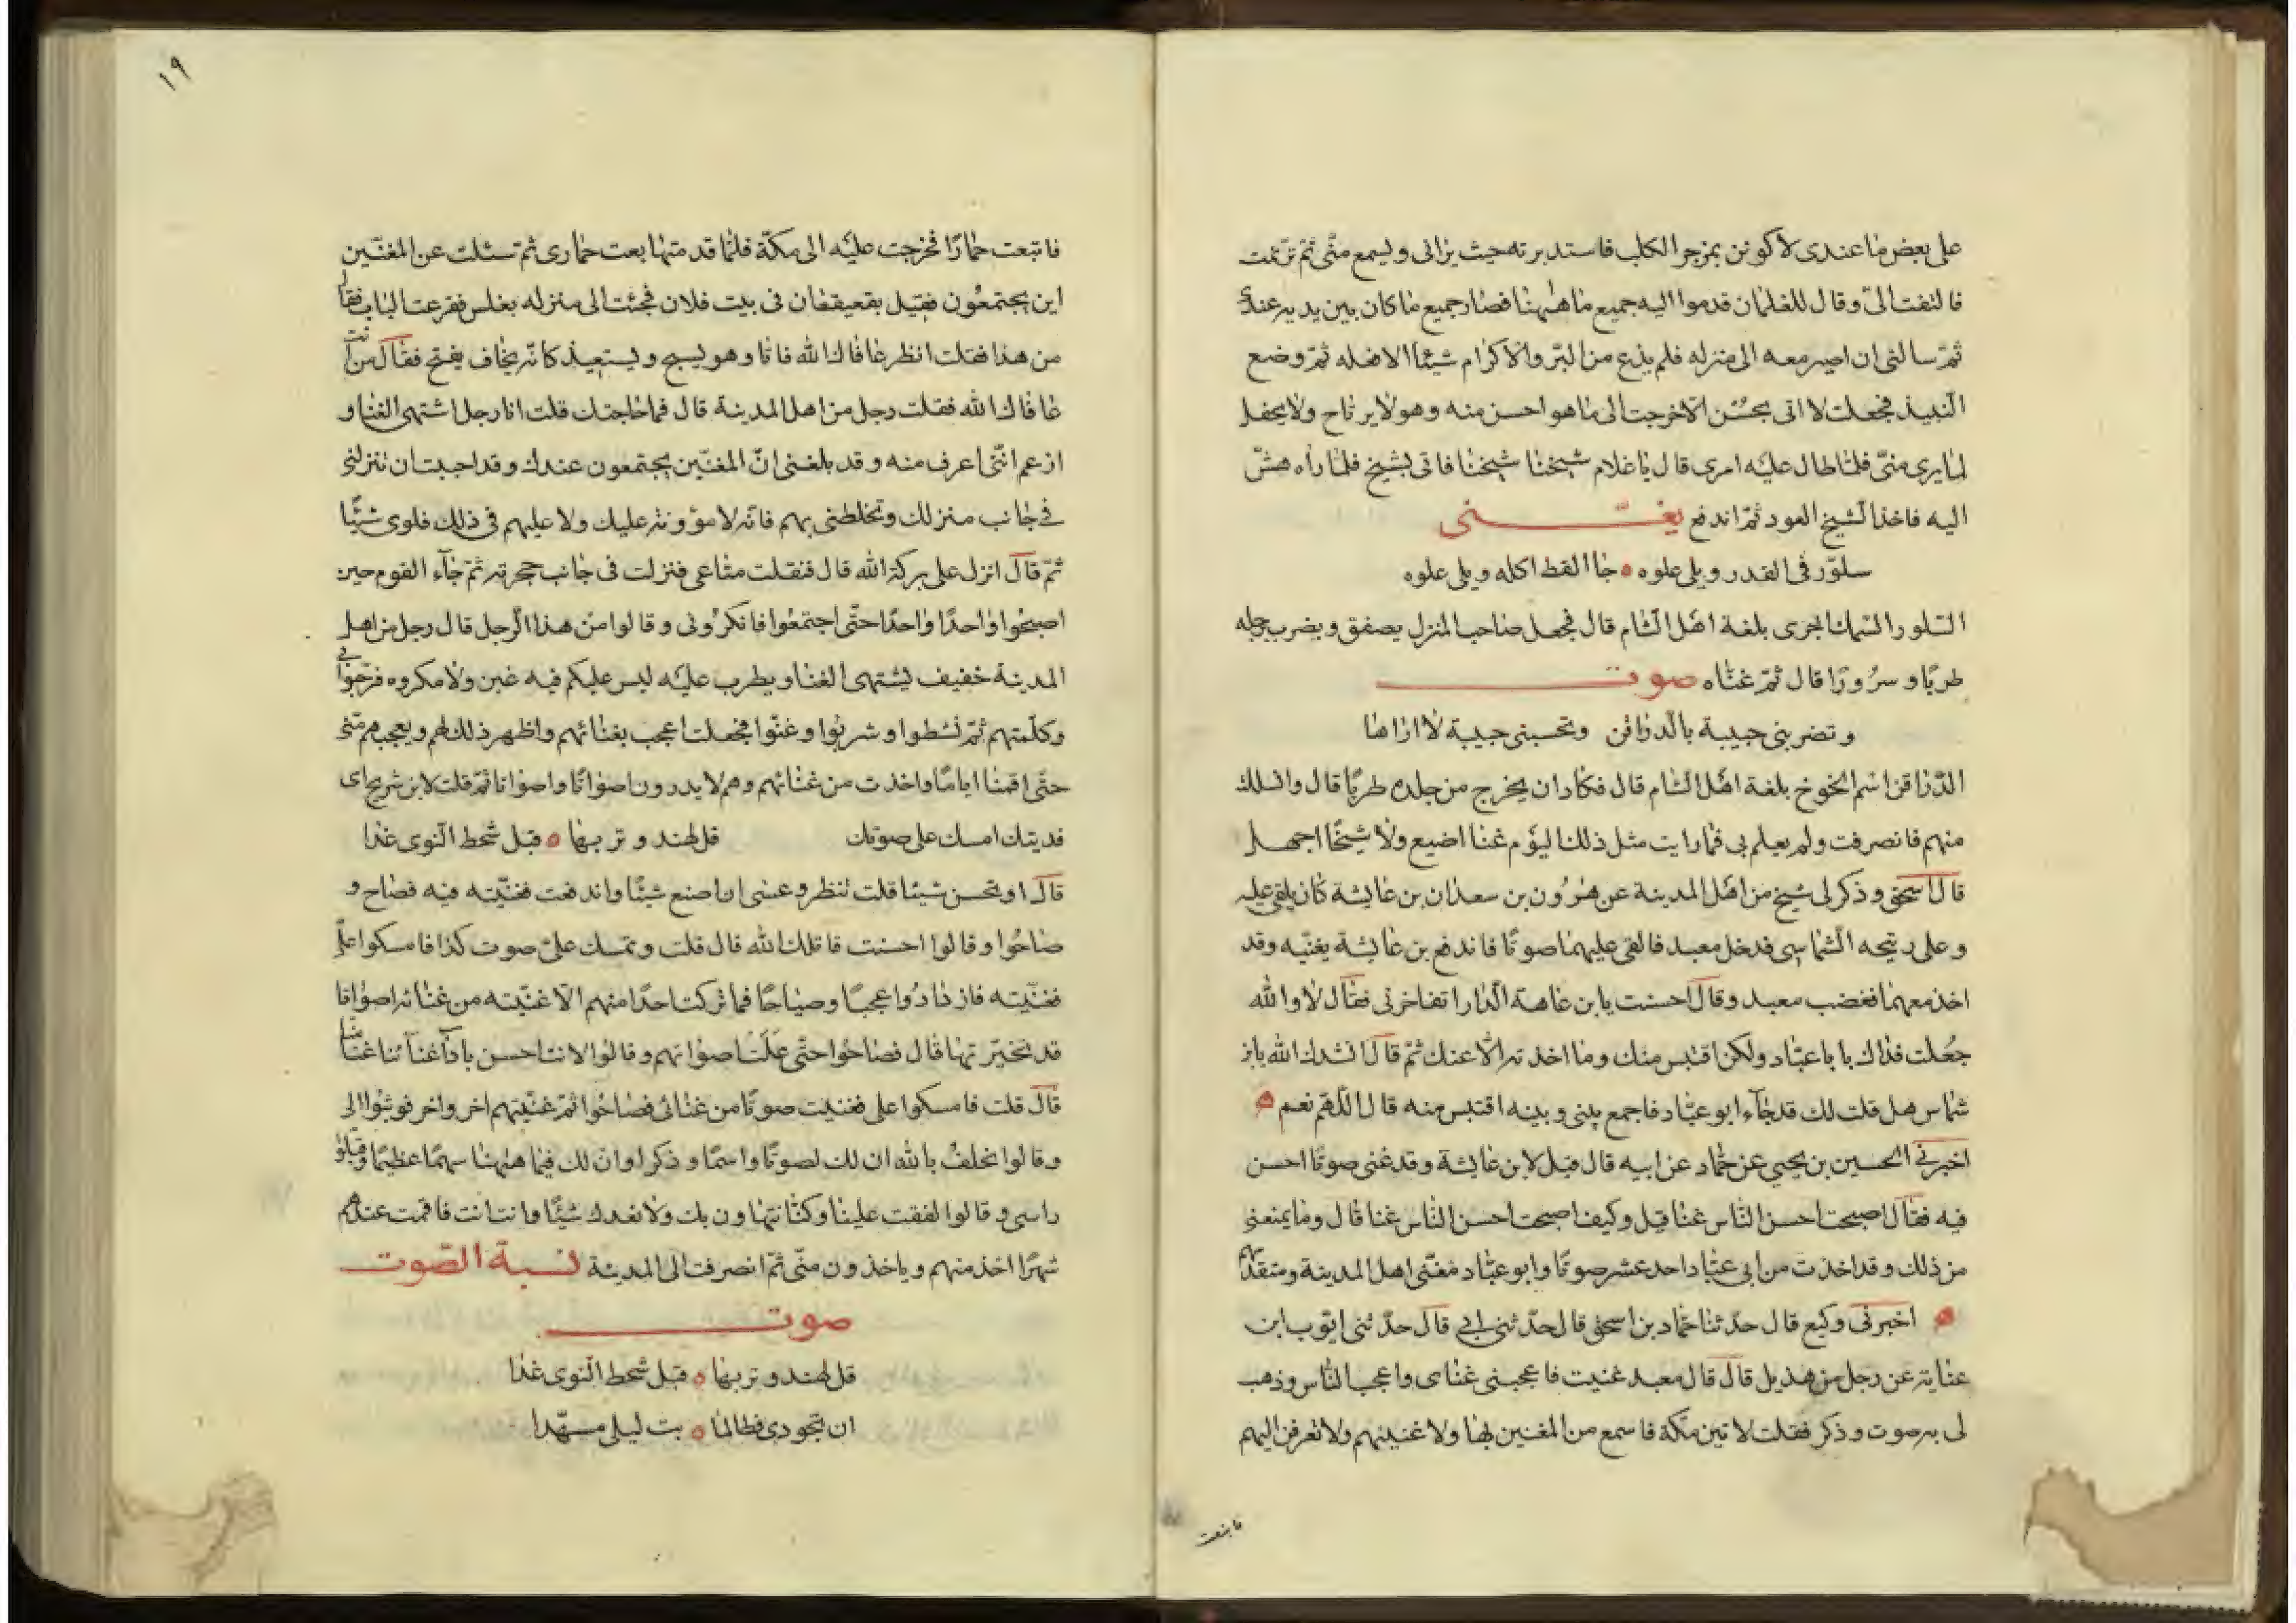 على بعض ما عندى لاكونن بمزجر الكلب فاستدبرته حيث يرانى ويسمع منّى ثمّ ترنمت
فالتفت الىّ وقال للغلمان قدموا اليه جميع ما هٰهنا فصار جميع ما كان بين يديه عندى
ثمّ سالنى ان اصير معه الى منزله فلم يدع من البرّ والاكرام شيئا الا فعله ثمّ وضع
النبيذ فجعلت لا اتى بحسُن الّا خرجت الى ما هو احسن منه وهو لا يرتاح ولا يحفل
لما يرى منىّ فلمّا طال عليه امرى قال يا غلام شيخنا شيخنا فاتى بشيخ فلما راه هشّ
اليه فاخذ الشيخ العود ثمّ اندفع يغـــنّى
سلوّر فى القدر ويلى علوه ۝ جا القط اكله ويلى علوه
السلور السمك الجرى بلغة اهل الشام قال فجعل صاحب المنزل يصفق ويضرب برجله
طربًا وسرُورًا قال ثمّ غنّاه صوت
وتضربنى حبيبة بالدراقن وتحسبنى حبيبة لا اراها
الدّراقن اسم الخوخ بلغة اهل الشام قال فكاد ان يخرج من جلده طربًا قال وانسللت
منهم فانصرفت ولم يعلم بى فما رايت مثل ذلك اليوم غنا اضيع ولا شيخًا اجهل
قال اسحق وذكر لى شيخ من اهل المدينة عن هرُون بن سعد ان بن عايشة كان يلقى عليه
وعلى ريحه الشماسى فدخل معبد فالقى عليهما صوتًا فاندفع بن عايشة يغنّيه وقد
اخذ معهما فغضب معبد وقال احسنت يا بن عاهة الدار اتفاخرنى فقال لا والله
جعُلت فداك يا با عبّاد ولكن اقتبس منك وما اخذته الّا عنك ثمّ قال انشدك الله يا بن
شماس هل قلت لك قد جآء ابو عبّاد فاجمع بينى وبينه اقتبس منه قال اللّهم نعم ۝
اخبرنى الحسين بن يحيي عن حماد عن ابيه قال قيل لابن عايشة وقد غنى صوتًا احسن
فيه فقال اصبحت احسن الناس غنا قيل وكيف اصبحت احسن الناس غنا قال وما يمنعنى
من ذلك وقد اخذت من ابى عبّاد احد عشر صوتًا وابو عبّاد مغنّى اهل المدينة ومتقدّمهم
۝ اخبرنى وكيع قال حدّثنا حمّاد بن اسحق قال حدّثنى ابي قال حدّثنى ايّوب ابن
عناية عن رجل من هذيل قال قال معبد غنيت فاعجبنى غناى واعجب الناس وذهب
لى به صوت وذكر فقلت لاتين مكّة فاسمع من المغنين بها ولاغنينهم ولاتعرفن اليهم
فابتعت
١٩
فابتعت حمارًا فخرجت عليه الى مكّة فلمّا قدمتها بعت حمارى ثم سئلت عن المغنّين
اين يجتمعُون فقيل بقعيقعان فى بيت فلان فجئت الى منزله بغلس فقرعت الباب فقال
من هذا فقلت انظر عافاك الله فاتا وهو يسبح ويستعيذ كانّه يخاف يفتح فقال من انت
عافاك الله فقلت رجل من اهل المدينة قال فما حاجتك قلت انا رجل اشتهى الغنا و
ازعم انّنى اعرف منه وقد بلغنى انّ المغنّين يجتمعون عندك وقد احببت ان تنزلنى
فى جانب منزلك وتخلطنى بهم فانّه لا مؤونة عليك ولا عليهم فى ذلك فلوى شيئًا
ثمّ قال انزل على بركة الله قال فنقلت متاعى فنزلت فى جانب حجرته ثمّ جآء القوم حين
اصبحُوا واحدًا واحدًا حتّى اجتمعُوا فانكرُونى وقالوا من هذا الرجل قال رجل من اهل
المدينة خفيف يشتهى الغنا ويطرب عليه ليس عليكم فيه غبن ولا مكروه فرحّبوا بى
وكلّمتهم ثمّ نشطوا وشربوا وغنّوا فجعلت اعجب بغنائهم واظهر ذلك لهم ويعجبهم منّى
حتّى اقمنا اياما واخذت من غنائهم وهم لا يدرون اصواتًا واصواتا ثمّ قلت لابن شريح اى
فديتك امسك على صوتك قل لهند وتربها ۝ قبل شحط النوى غدا
قال او تحسن شيئا قلت تنظر وعسى ان اصنع شيئًا واندفعت فغنّيته فيه فصاح و
صاحُوا وقالوا احسنت قاتلك الله قال قلت وتمسك علىّ صوت كذا فامسكوا علىّ
فغنّيته فازدادُوا عجبًا وصياحًا فما تركت احدًا منهم الّا غنّيته من غنائه اصواتا
قد تخيّرتها قال فصاحُوا حتّى علت اصواتهم وقالوا لانت احسن بادآ غنآئنا غنّا منّا
قال قلت فامسكوا على فغنيت صوتًا من غنائى فصاحُوا ثمّ غنّيتهم اخر واخر فوثبُوا الى
وقالوا نحلف بالله ان لك لصوتًا واسمًا وذكرا وان لك فيما هٰهنا سهمًا عظيمًا وقبلوا
راسى وقالوا لفقت علينا وكنّا نتهاون بك ولا نعدك شيئًا وانت انت فاقمت عندهم
شهرًا اخذ منهم وياخذون منّى ثمّ انصرفت الى المدينة نسبة الصّوت
صوت
قل لهند وتربها ۝ قبل شحط النوى غدا
ان تجودى فطالما ۝ بت ليلى مسهّدا